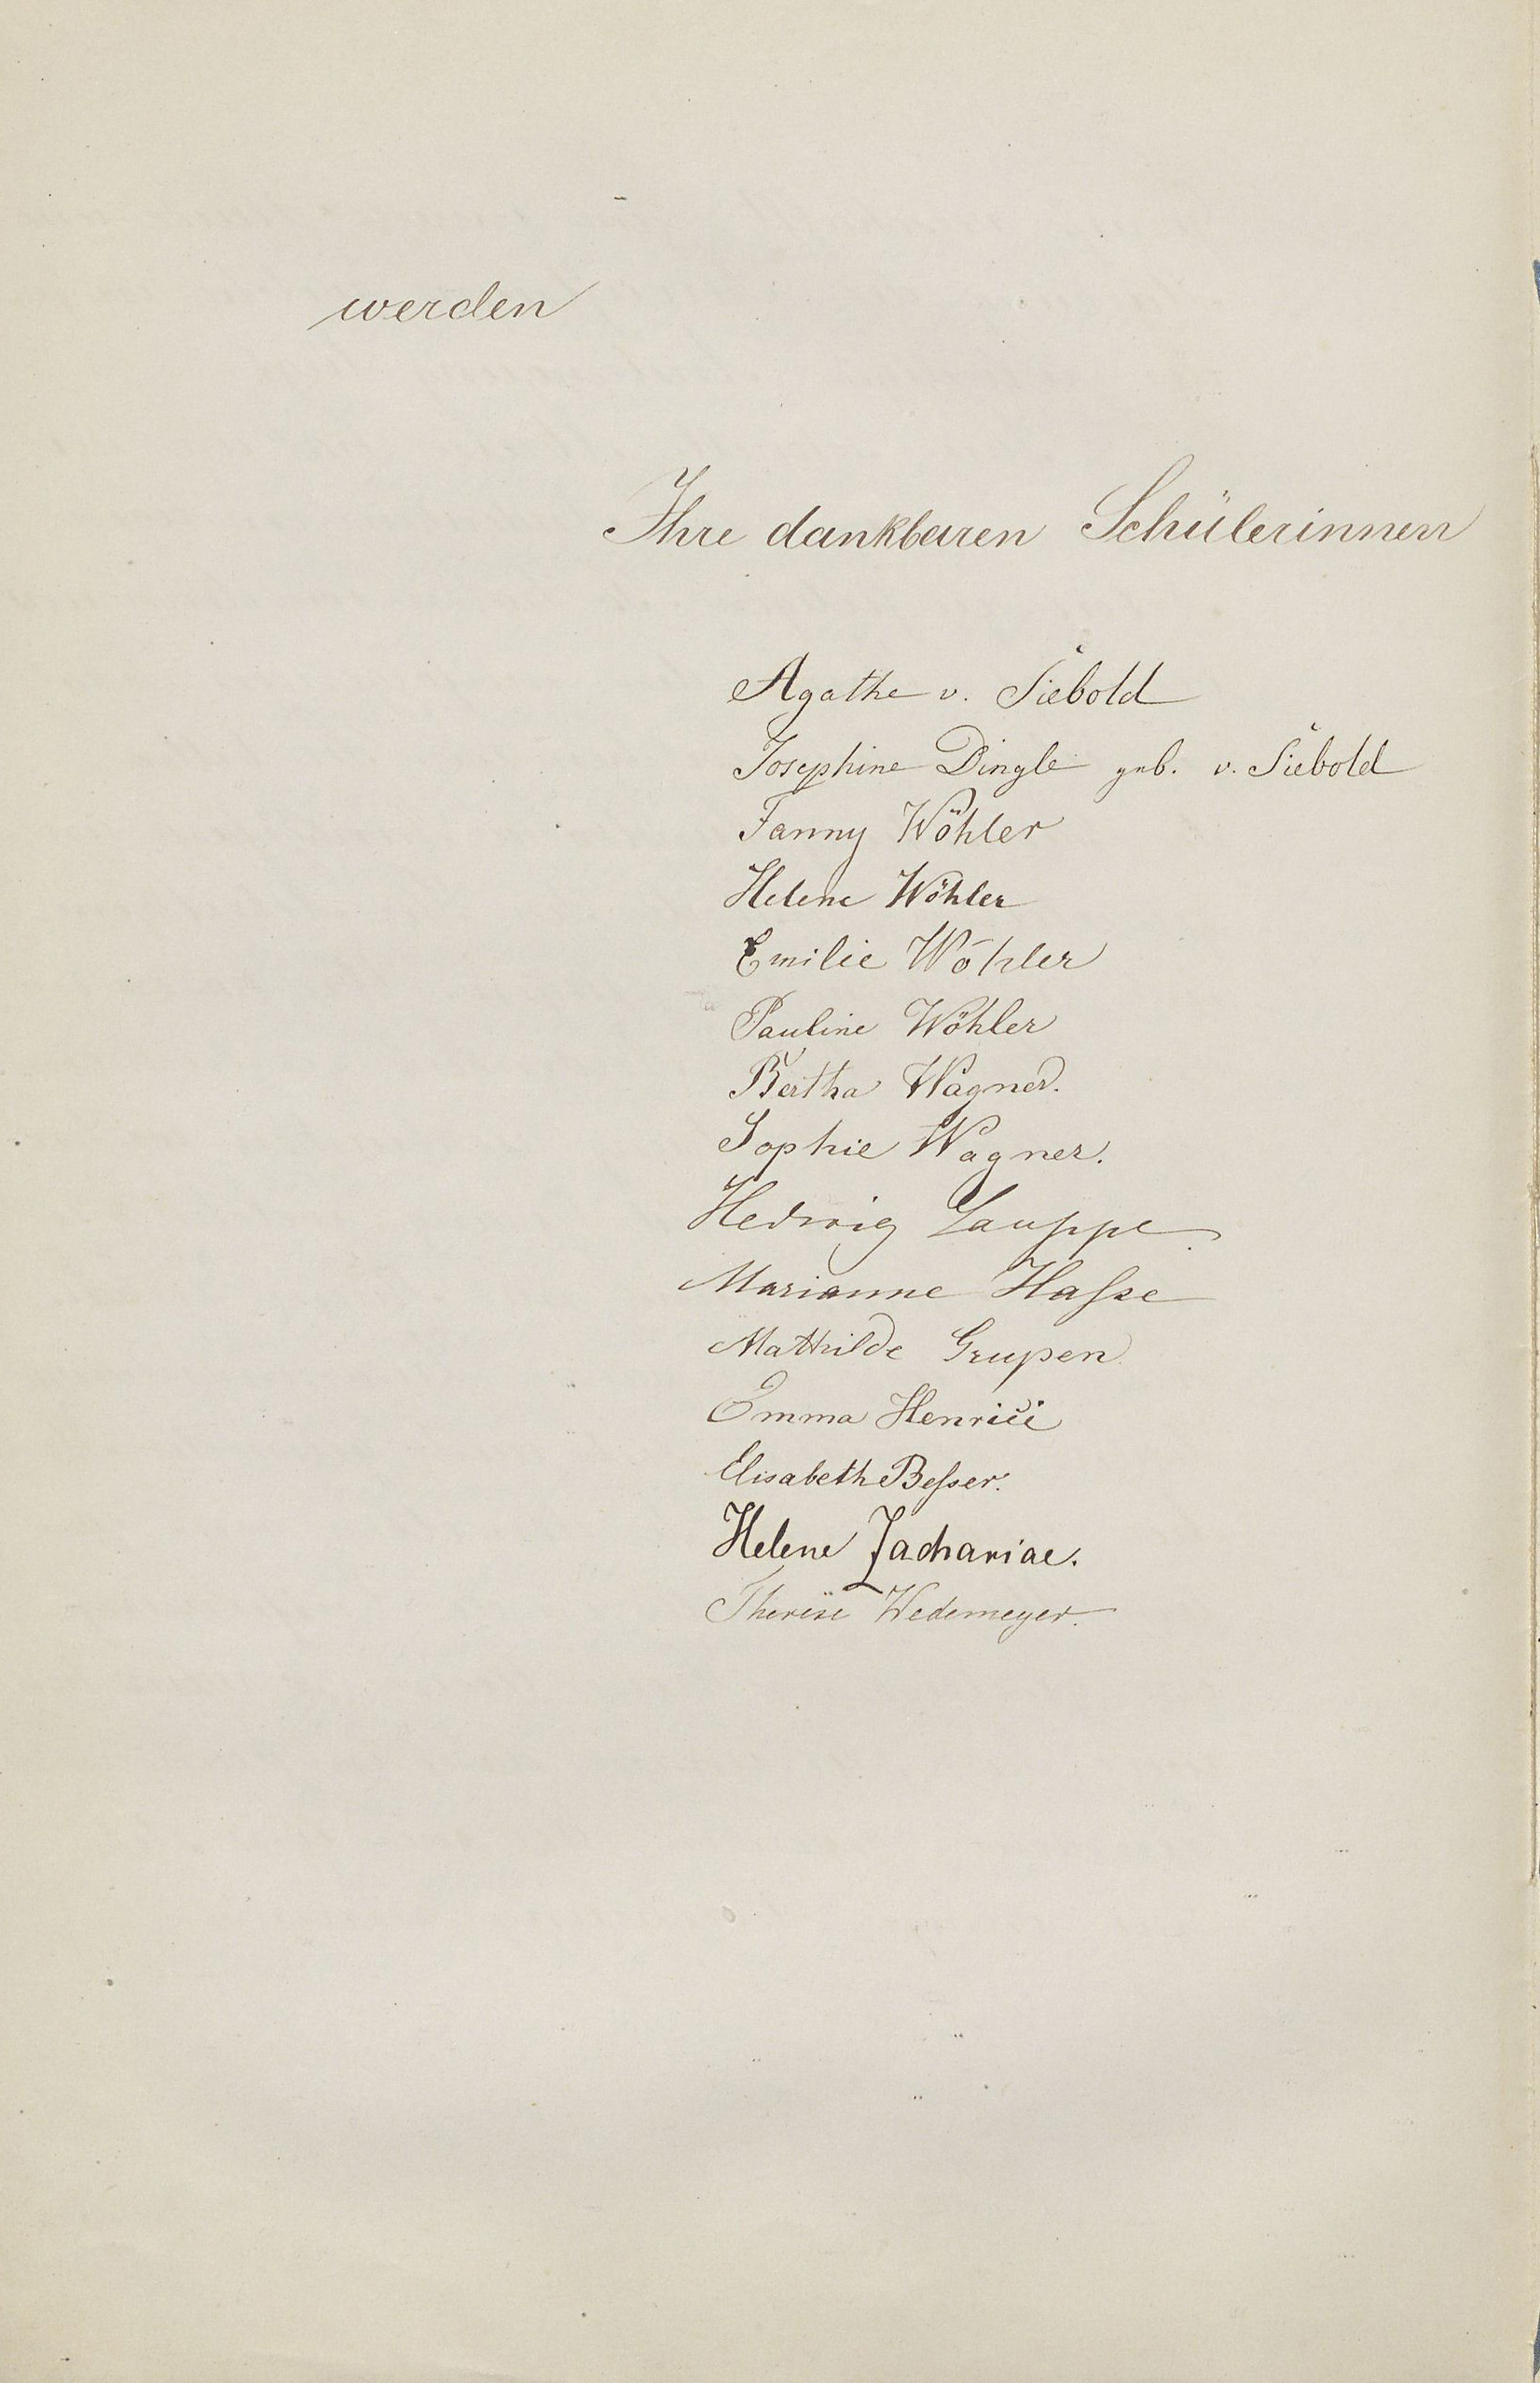 werden
Ihre dankbaren Schülerinnen
Agathe v. Siebold
Josephine Dingle geb. v. Siebold
Fanny Wöhler
Helene Wöhler
Emilie Wöhler
Pauline Wöhler
Bertha Wagner.
Sophie Wagner.
Hedwig Sauppe.
Marianne Haſse
Mathilde Grupen
Emma Henrici
Elisabeth Beſser.
Helene Zachariae.
Therese Wedemeyer.